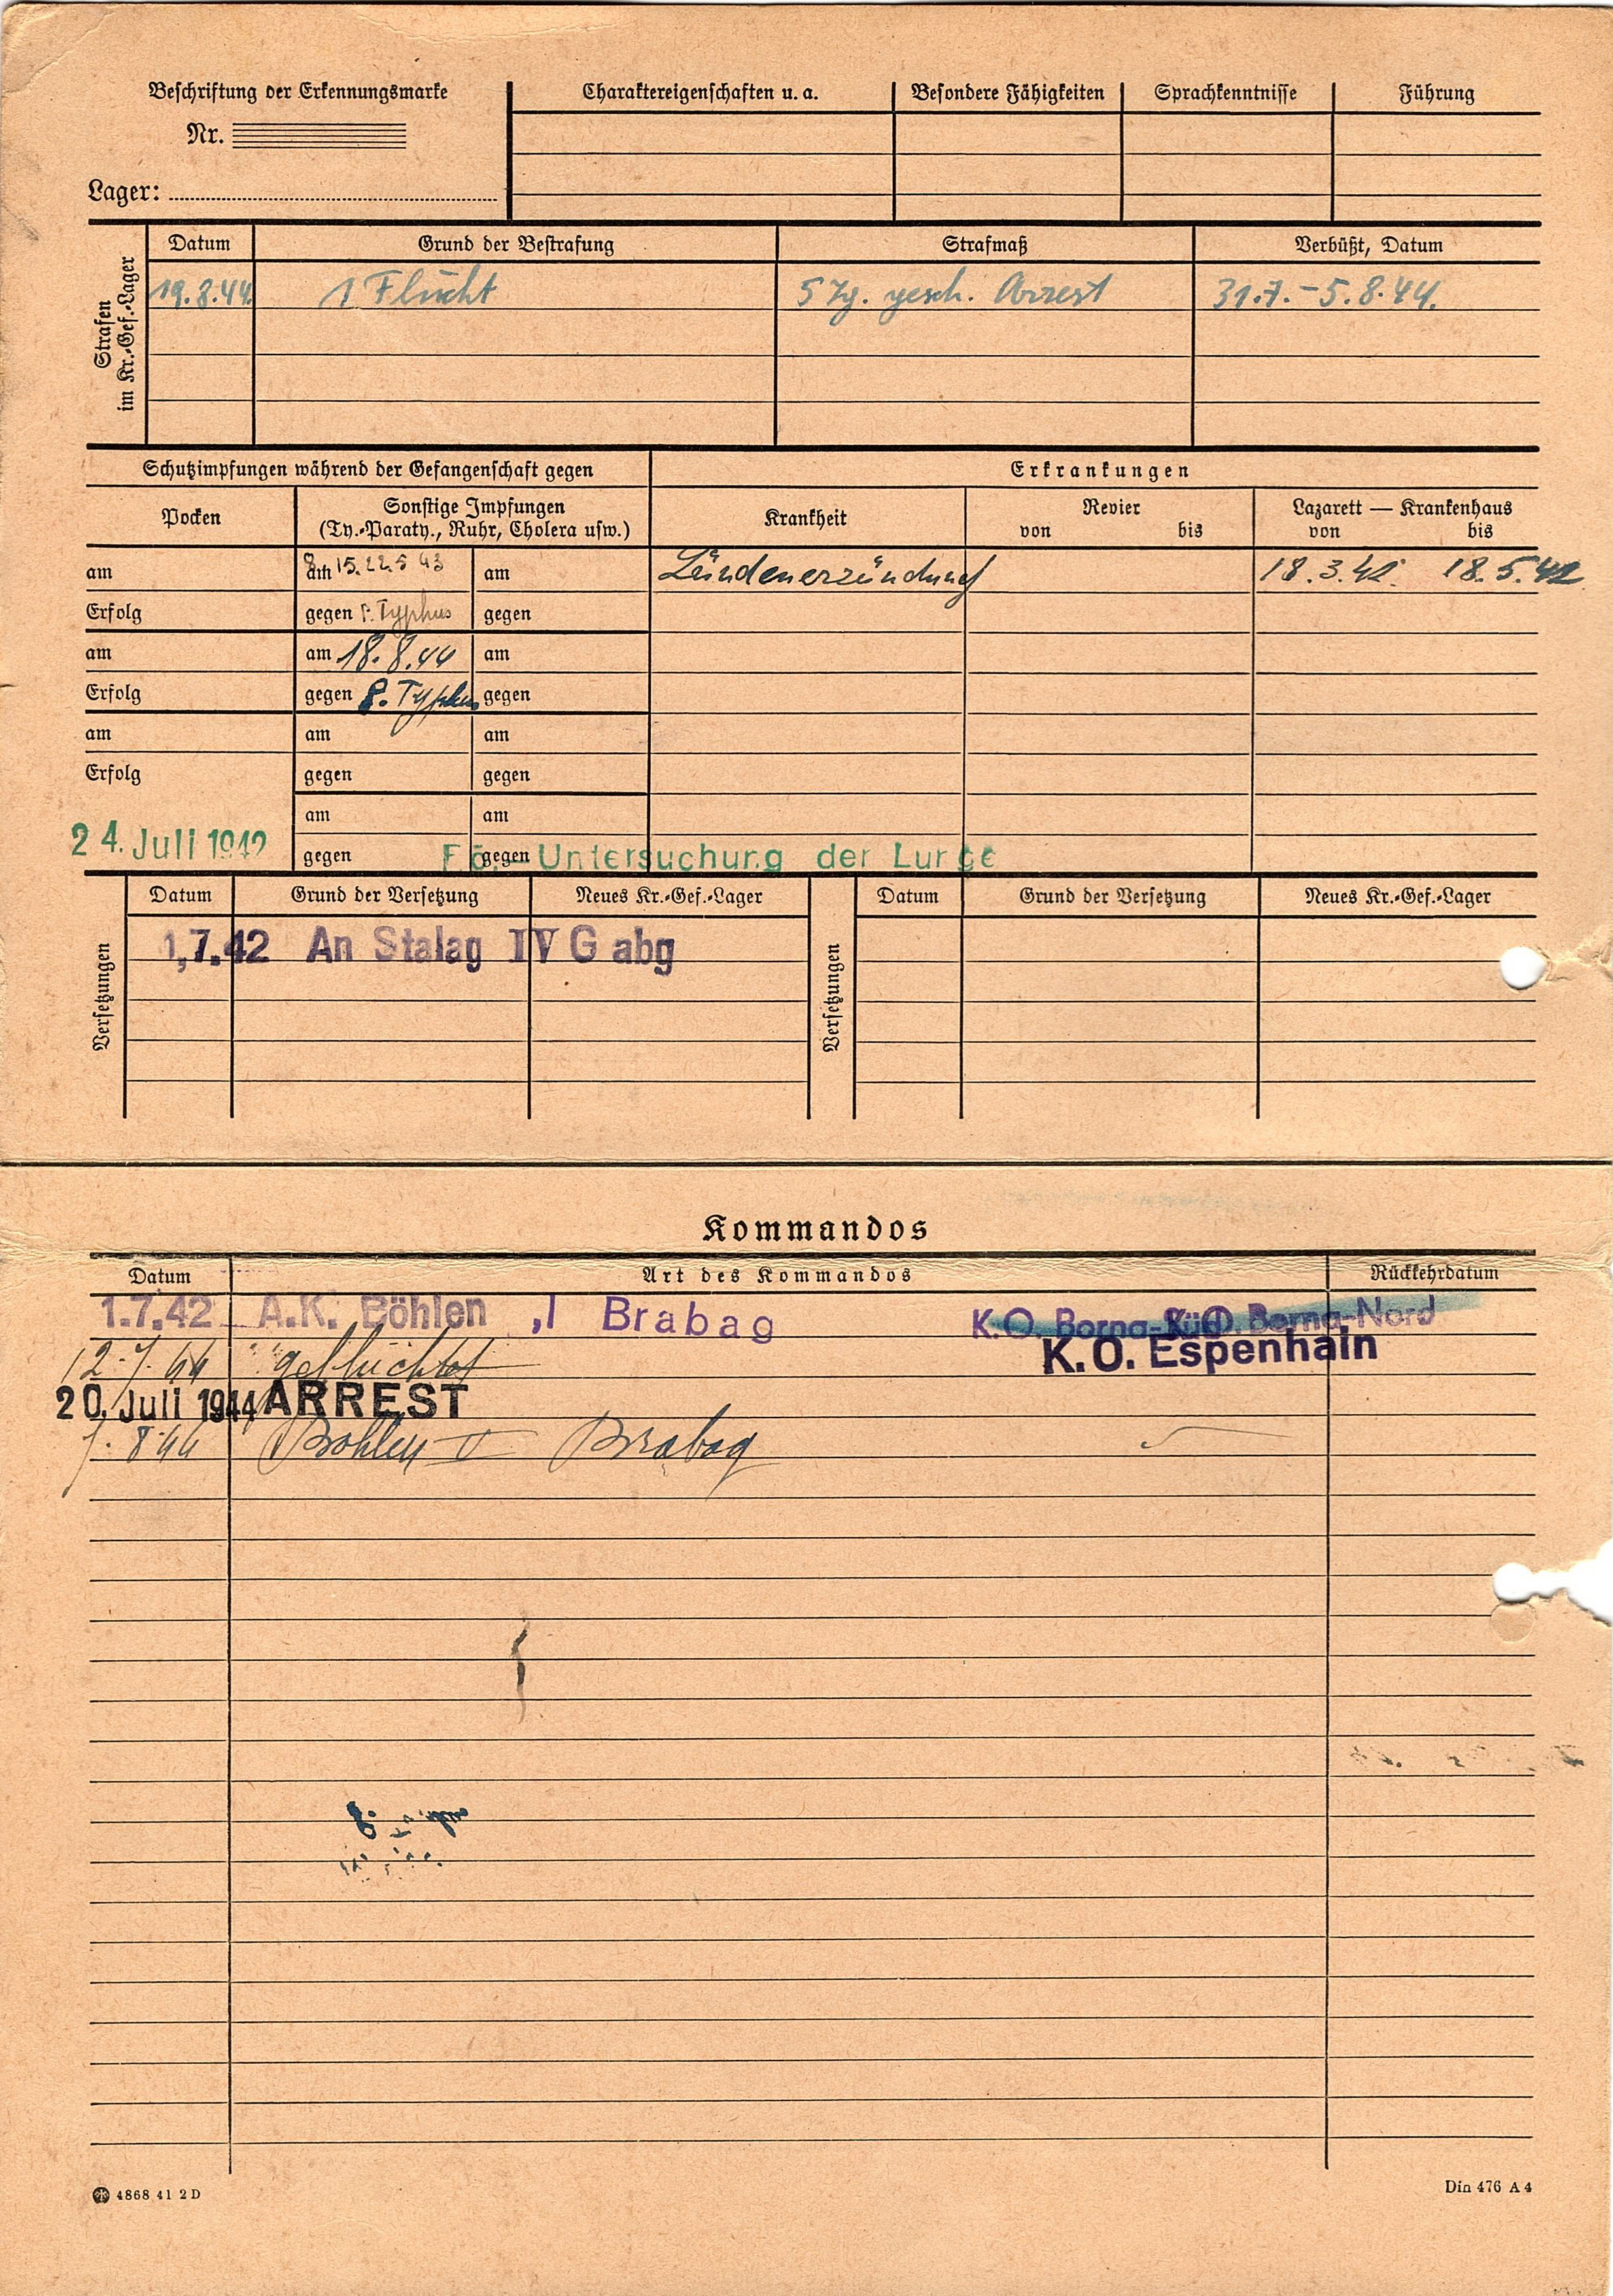 Beschriftung der Erkennungsmarke
Nr.
Lager:
Charaktereigenschaften u. a. Besondere Fähigkeiten Sprachkenntnisse Führung
Strafen
im Kr.-Gef.-Lager
Datum Grund der Bestrafung Strafmaß Verbüßt, Datum
19.8.44. 1 Flucht 5 Tg. gesch. Arrest 31.7.-5.8.44.
Schutzimpfungen während der Gefangenschaft gegen Erkrankungen
Pocken Sonstige Impfungen Krankheit Revier Lazarett — Krankenhaus
(Ty.-Paraty., Ruhr, Cholera usw.) von bis von bis
am am 8. 15. 22.5 43 am 18.3.42. 18.5.42
Erfolg gegen P. Typhus gegen
am am 18.8.44 am
Erfolg gegen P. Typhus gegen
am am am
Erfolg gegen gegen
am am
24. Juli 1942 gegen gegen Untersuchung der Lunge
Versetzungen
Datum Grund der Versetzung Neues Kr.-Gef.-Lager
1,7.42 An Stalag IV G abg
Versetzungen
Datum Grund der Versetzung Neues Kr.-Gef.-Lager
Kommandos
Datum Art des Kommandos Rückkehrdatum
1.7.42 A.K. Böhlen ,I Brabag K.O. Borna-Süd K.O. Borna-Nord
12.7.44 geflüchtet K.O. Espenhain
20. Juli 1944 ARREST
7.8.44 Böhlen II Brabag
4868 41 2 D
Din 476 A 4